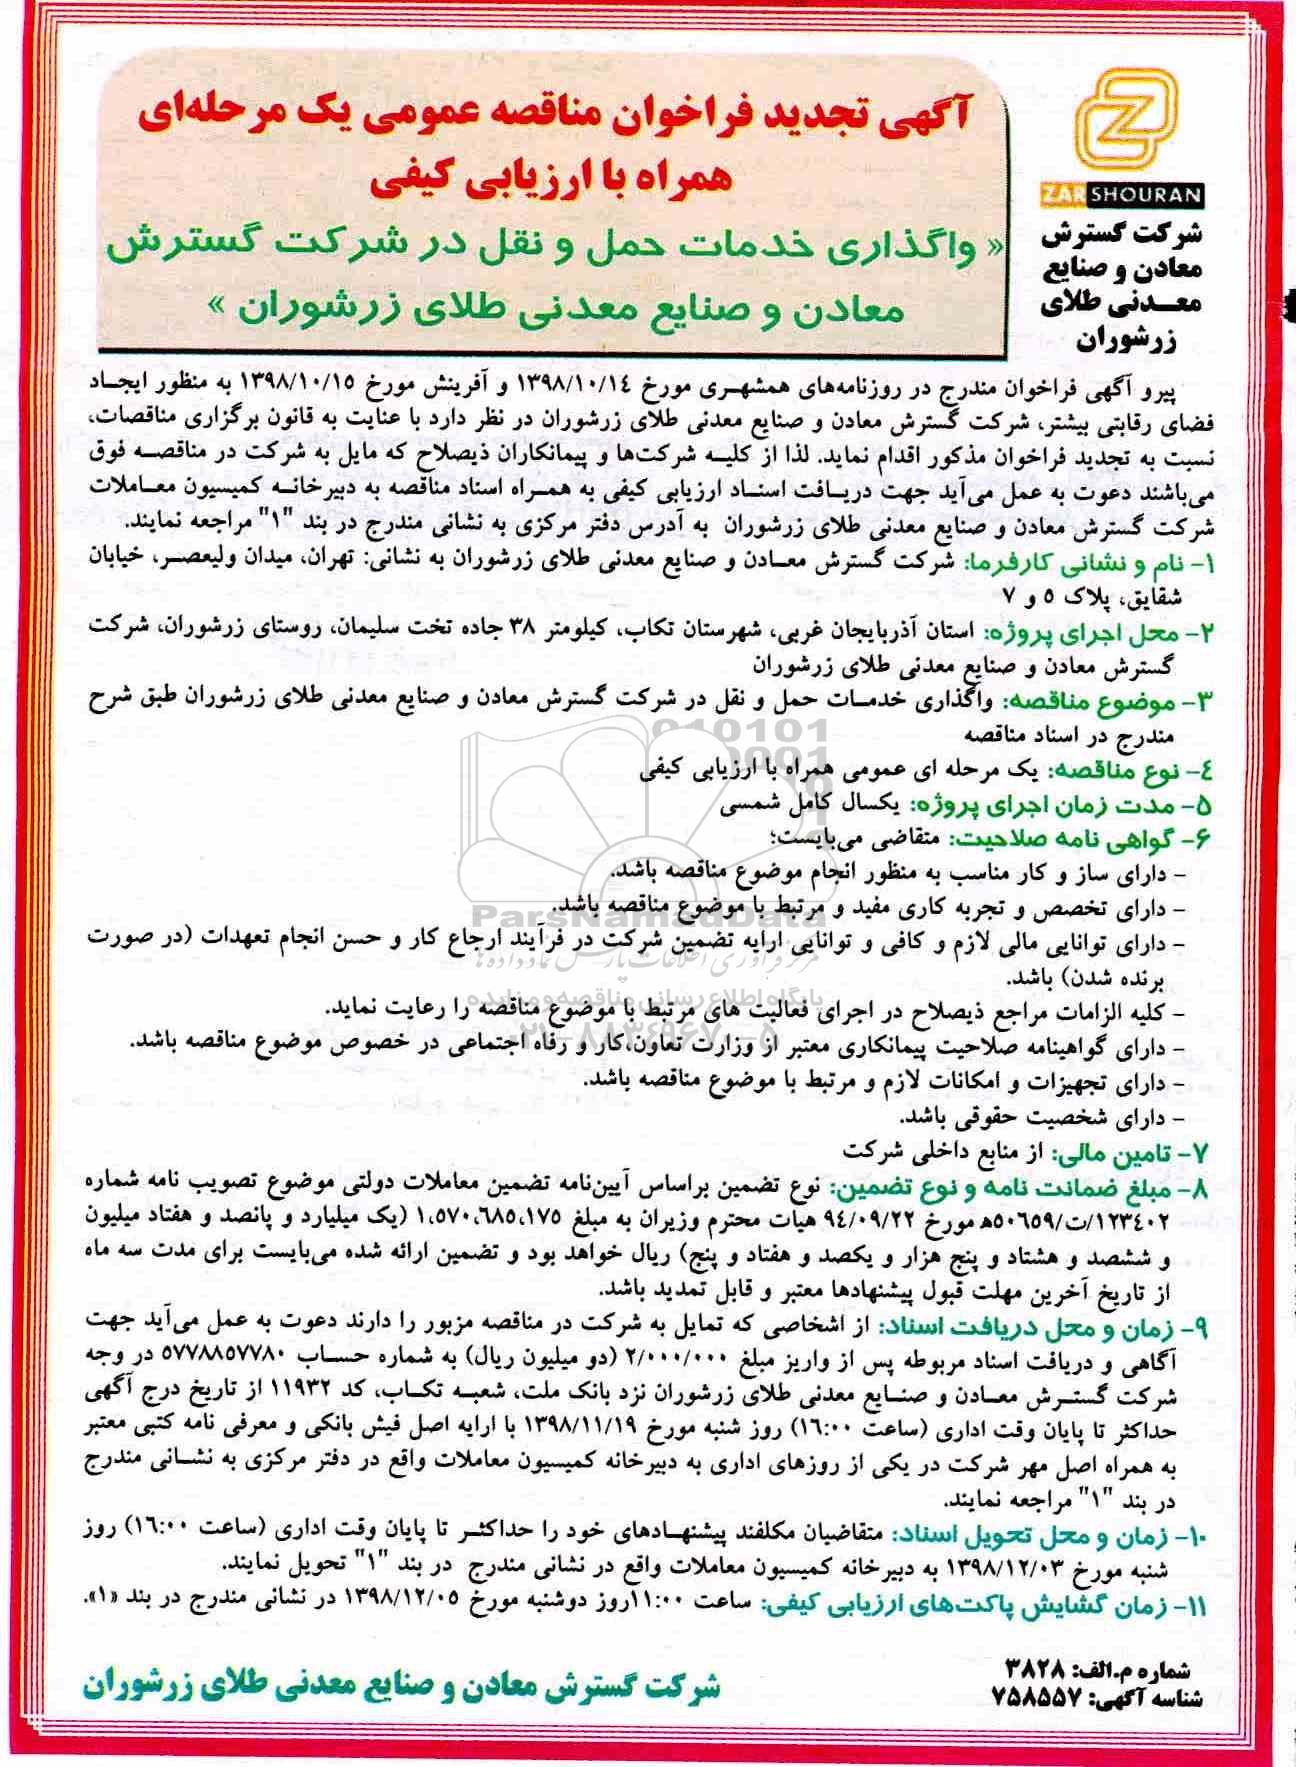 آگهی تجدید فراخوان مناقصه عمومی یک مرحله‌ای
همراه با ارزیابی کیفی
« واگذاری خدمات حمل و نقل در شرکت گسترش
معادن و صنایع معدنی طلای زرشوران »
ZARSHOURAN
شرکت گسترش
معادن و صنایع
معدنی طلای
زرشوران
پیرو آگهی فراخوان مندرج در روزنامه‌های همشهری مورخ ۱۳۹۸/۱۰/۱۴ و آفرینش مورخ ۱۳۹۸/۱۰/۱۵ به منظور ایجاد
فضای رقابتی بیشتر، شرکت گسترش معادن و صنایع معدنی طلای زرشوران در نظر دارد با عنایت به قانون برگزاری مناقصات،
نسبت به تجدید فراخوان مذکور اقدام نماید. لذا از کلیه شرکت‌ها و پیمانکاران ذیصلاح که مایل به شرکت در مناقصه فوق
می‌باشند دعوت به عمل می‌آید جهت دریافت اسناد ارزیابی کیفی به همراه اسناد مناقصه به دبیرخانه کمیسیون معاملات
شرکت گسترش معادن و صنایع معدنی طلای زرشوران به آدرس دفتر مرکزی به نشانی مندرج در بند "۱" مراجعه نمایند.
۱- نام و نشانی کارفرما: شرکت گسترش معادن و صنایع معدنی طلای زرشوران به نشانی: تهران، میدان ولیعصر، خیابان
شقایق، پلاک ۵ و ۷
۲- محل اجرای پروژه: استان آذربایجان غربی، شهرستان تکاب، کیلومتر ۳۸ جاده تخت سلیمان، روستای زرشوران، شرکت
گسترش معادن و صنایع معدنی طلای زرشوران
۳- موضوع مناقصه: واگذاری خدمات حمل و نقل در شرکت گسترش معادن و صنایع معدنی طلای زرشوران طبق شرح
مندرج در اسناد مناقصه
۴- نوع مناقصه: یک مرحله ای عمومی همراه با ارزیابی کیفی
۵- مدت زمان اجرای پروژه: یکسال کامل شمسی
۶- گواهی نامه صلاحیت: متقاضی می‌بایست؛
- دارای ساز و کار مناسب به منظور انجام موضوع مناقصه باشد.
- دارای تخصص و تجربه کاری مفید و مرتبط با موضوع مناقصه باشد.
ParsNamadData
- دارای توانایی مالی لازم و کافی و توانایی ارایه تضمین شرکت در فرآیند ارجاع کار و حسن انجام تعهدات (در صورت
برنده شدن) باشد.
پایگاه اطلاع رسانی مناقصه و مزایده
- کلیه الزامات مراجع ذیصلاح در اجرای فعالیت های مرتبط با موضوع مناقصه را رعایت نماید.
۰۲۱-۸۸۳۴۹۶۷۰-۵
- دارای گواهینامه صلاحیت پیمانکاری معتبر از وزارت تعاون،کار و رفاه اجتماعی در خصوص موضوع مناقصه باشد.
- دارای تجهیزات و امکانات لازم و مرتبط با موضوع مناقصه باشد.
- دارای شخصیت حقوقی باشد.
۷- تامین مالی: از منابع داخلی شرکت
۸- مبلغ ضمانت نامه و نوع تضمین: نوع تضمین براساس آیین‌نامه تضمین معاملات دولتی موضوع تصویب نامه شماره
۱۲۳۴۰۲/ت/۵۰۶۵۹ه مورخ ۹۴/۰۹/۲۲ هیات محترم وزیران به مبلغ ۱،۵۷۰،۶۸۵،۱۷۵ (یک میلیارد و پانصد و هفتاد میلیون
و ششصد و هشتاد و پنج هزار و یکصد و هفتاد و پنج) ریال خواهد بود و تضمین ارائه شده می‌بایست برای مدت سه ماه
از تاریخ آخرین مهلت قبول پیشنهادها معتبر و قابل تمدید باشد.
۹- زمان و محل دریافت اسناد: از اشخاصی که تمایل به شرکت در مناقصه مزبور را دارند دعوت به عمل می‌آید جهت
آگاهی و دریافت اسناد مربوطه پس از واریز مبلغ ۲/۰۰۰/۰۰۰ (دو میلیون ریال) به شماره حساب ۵۷۷۸۸۵۷۷۸۰ در وجه
شرکت گسترش معادن و صنایع معدنی طلای زرشوران نزد بانک ملت، شعبه تکاب، کد ۱۱۹۳۲ از تاریخ درج آگهی
حداکثر تا پایان وقت اداری (ساعت ۱۶:۰۰) روز شنبه مورخ ۱۳۹۸/۱۱/۱۹ با ارایه اصل فیش بانکی و معرفی نامه کتبی معتبر
به همراه اصل مهر شرکت در یکی از روزهای اداری به دبیرخانه کمیسیون معاملات واقع در دفتر مرکزی به نشانی مندرج
در بند "۱" مراجعه نمایند.
۱۰- زمان و محل تحویل اسناد: متقاضیان مکلفند پیشنهادهای خود را حداکثر تا پایان وقت اداری (ساعت ۱۶:۰۰) روز
شنبه مورخ ۱۳۹۸/۱۲/۰۳ به دبیرخانه کمیسیون معاملات واقع در نشانی مندرج در بند "۱" تحویل نمایند.
۱۱- زمان گشایش پاکت‌های ارزیابی کیفی: ساعت ۱۱:۰۰روز دوشنبه مورخ ۱۳۹۸/۱۲/۰۵ در نشانی مندرج در بند «۱».
شماره م.الف: ۳۸۲۸
شناسه آگهی: ۷۵۸۵۵۷
شرکت گسترش معادن و صنایع معدنی طلای زرشوران